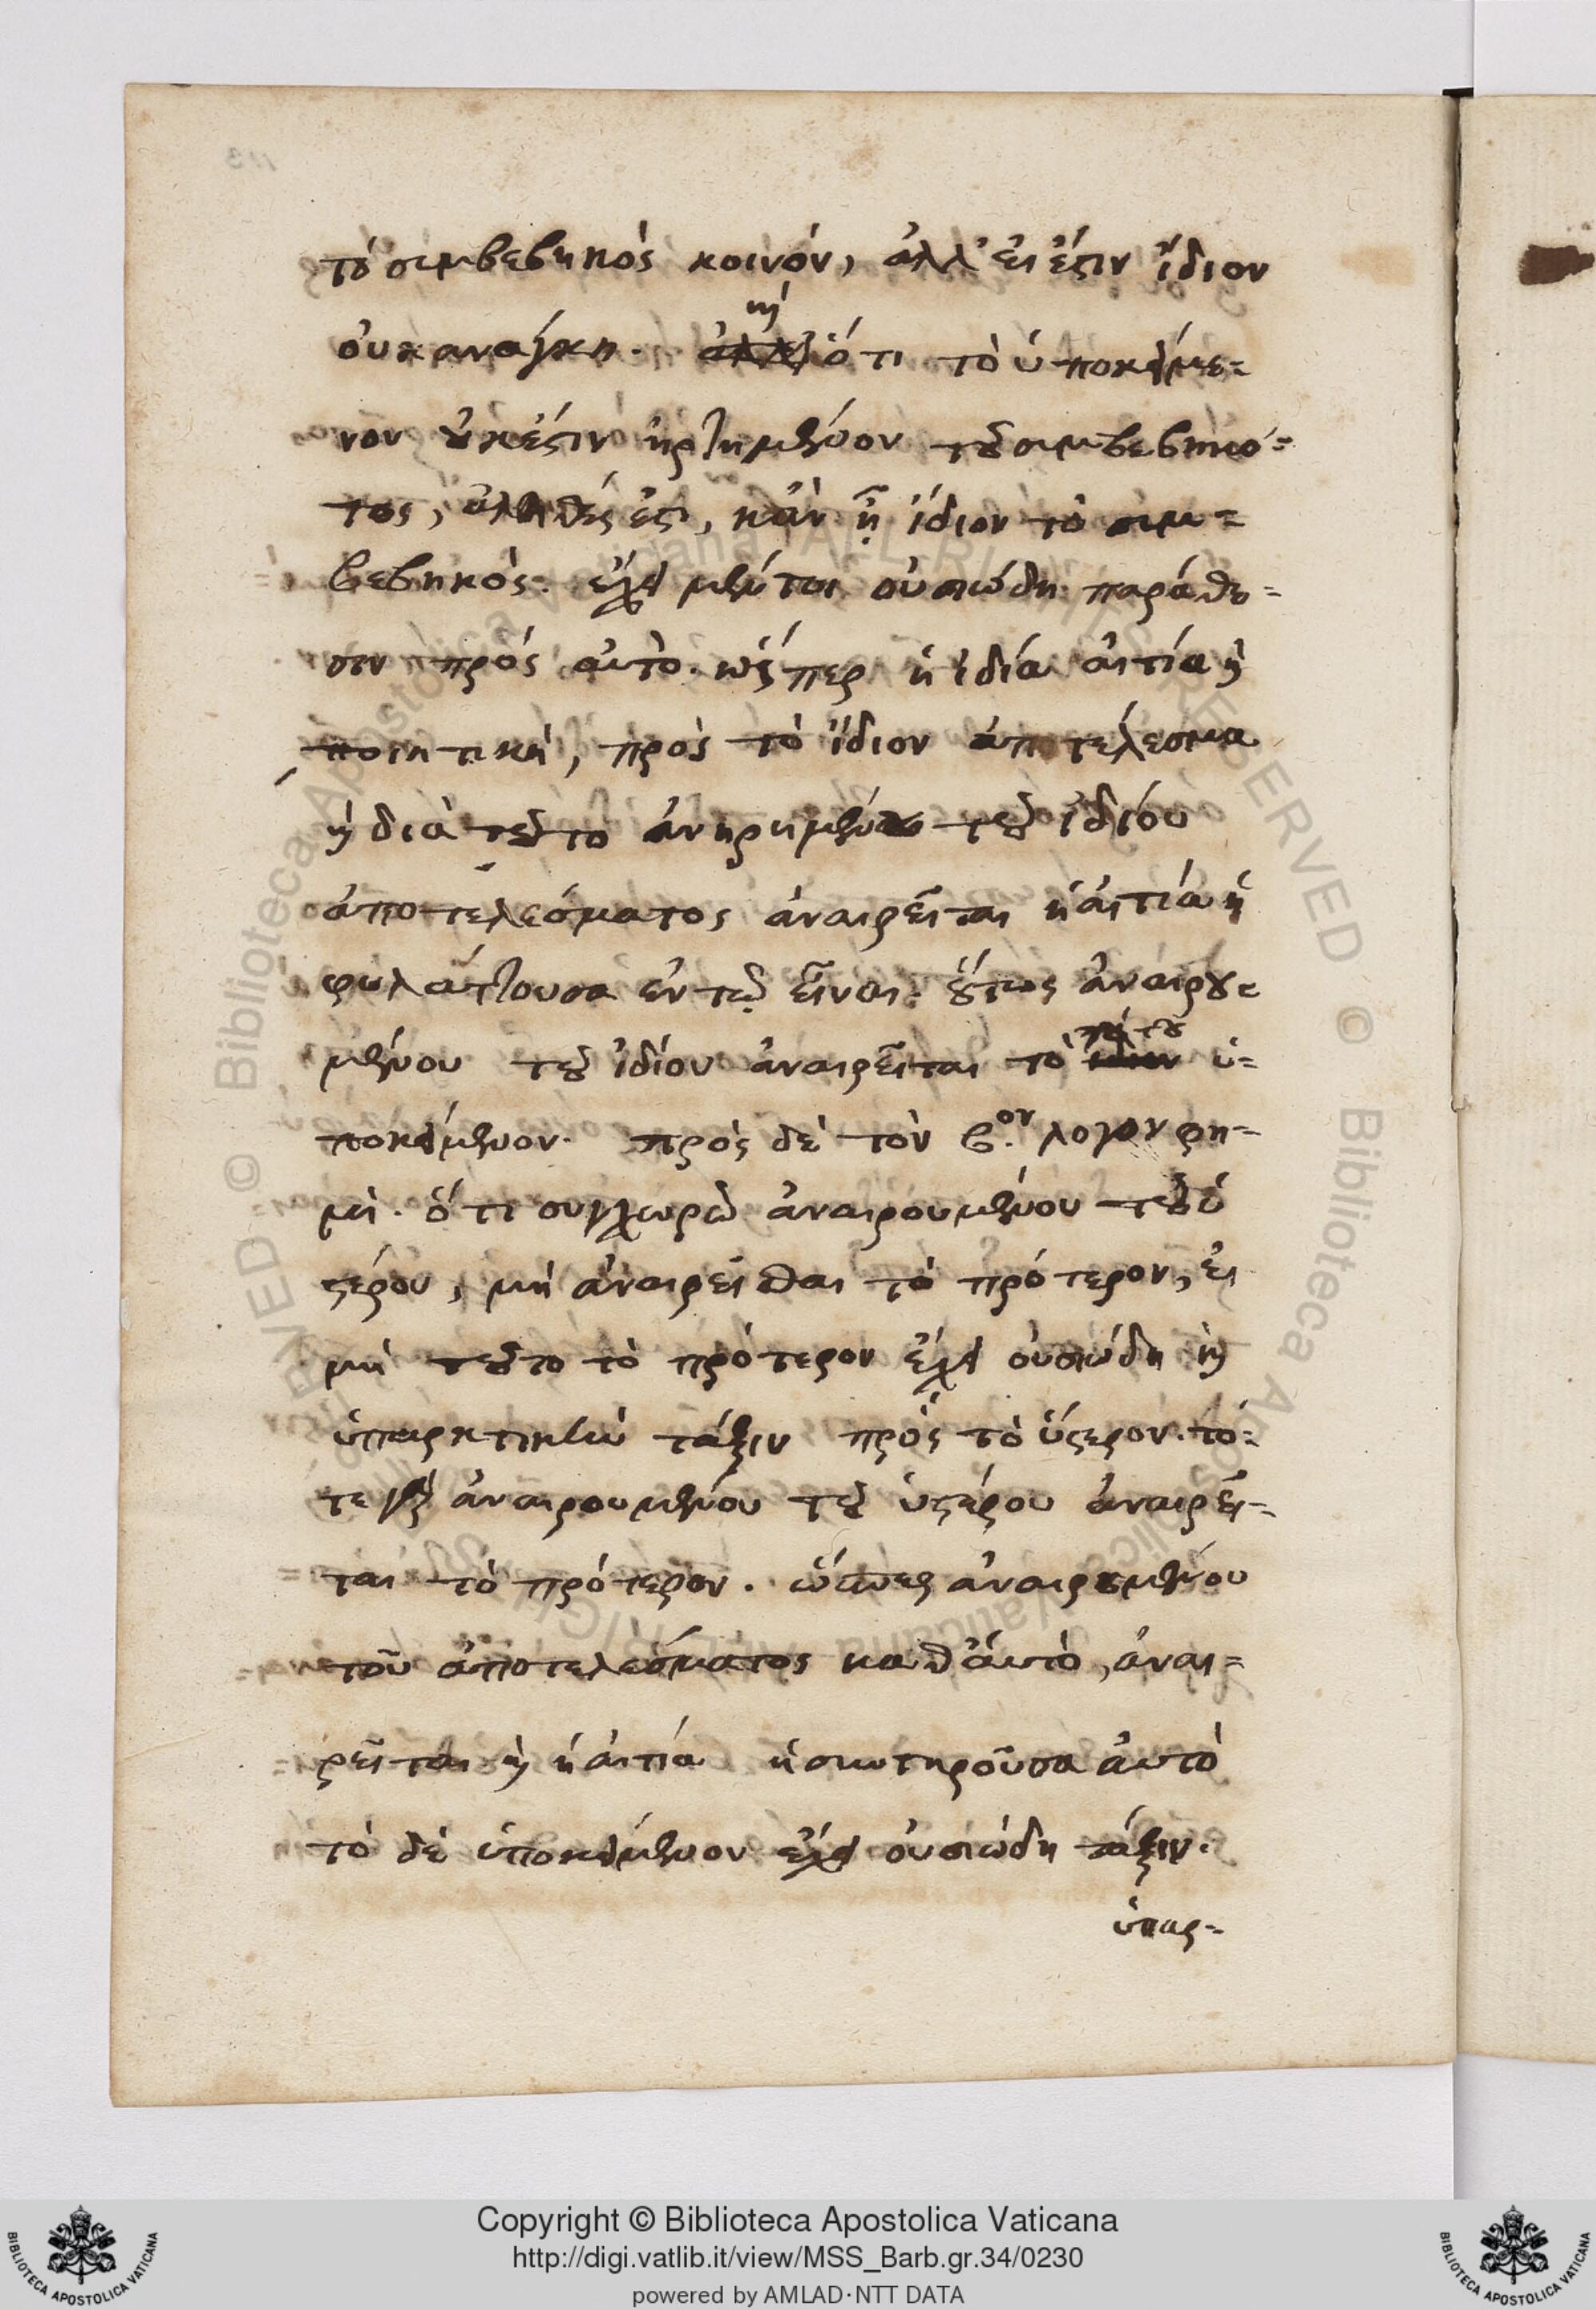 τὸ συμβεβηκὸς κοινόν, ἀλλ' εἰ ἐστιν ἴδιον
οὐκ αναγκη. καὶ ὅτι τὸ ὑποκείμε=
νον οὐκ ἔστιν ἠρτημένον τοῦ συμβεβηκό=
τος, ἀληθές ἐστι, κἂν ᾖ ἴδιον τὸ συμ=
βεβηκός. ἔχει μέντοι οὐσιώδη παράθε=
σιν πρὸς αὐτὸ. ὥσπερ ἡ ἰδία αἰτία ἡ
ποιητικὴ, πρὸς τὸ ἴδιον ἀποτέλεσμα
καὶ διὰ τοῦτο ἀνῃρημένου τοῦ ἰδίου
ἀποτελέσματος ἀναιρεῖται ἡ αἰτία ἡ
φυλάττουσα ἐν τῷ εἶναι. οὕτως ἀναιρου=
μένου τοῦ ἰδίου ἀναιρεῖται τὸ ὑ=
ποκείμενον. πρὸς δὲ τὸν β.ον λογον φη=
μὶ. ὅτι συγχωρῶ ἀναιρουμένου τοῦ ὑ
στέρου, μὴ ἀναιρεῖσθαι τὸ πρότερον, εἰ
μὴ τοῦτο τὸ πρότερον ἔχει οὐσιώδη καὶ
ὑπαρκτικὴν τάξιν πρὸς τὸ ὕστερον. τό=
τε γὰρ ἀναιρουμένου τοῦ ὑστέρου ἀναιρεῖ=
ται τὸ πρότερον. ὥσπερ ἀναιρουμένου
τοῦ ἀποτελέσματος καθ' αὑτὸ, ἀναι=
ρεῖται καὶ ἡ αἰτία ἡ σωτηροῦσα ἀυτὸ
τὸ δὲ ὑποκείμενον ἔχει οὐσιώδη τάξιν.
ὑπαρ=
Copyright © Biblioteca Apostolica Vaticana
http://digi.vatlib.it/view/MSS_Barb.gr.34/0230
powered by AMLAD·NTT DATA